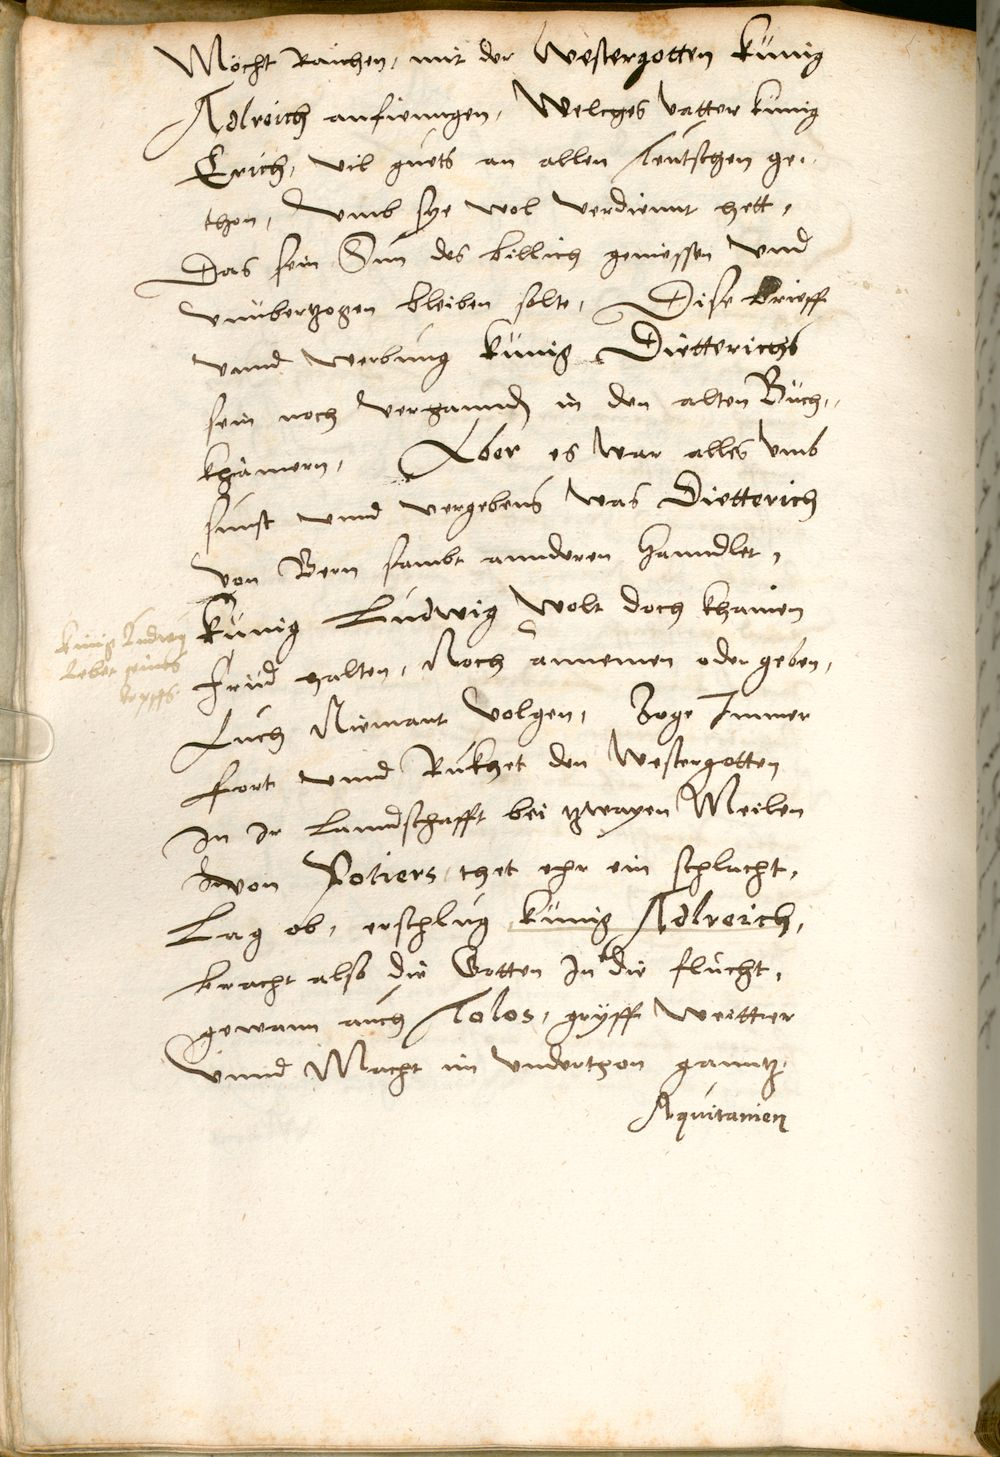 Möcht Raichen, mit der Westergotten künig
Adlreich anfienngen, Welches vatter künig
Erich, vil guets an allen Teutschen ge-
thon, Vmb sye wol verdiennt hett,
Das sein Sun des billich geniessen Vnd
vnüberzogen bleiben solte, Dise brieff
vnnd werbung künig Dietterichs
sein noch verhannd in den alten Büch-
khamern, Aber es war alles Vmb
sunst vnnd vergebens was Dietterich
von Bern sambt annderen hanndlet,
künig Ludwig wolt doch khainen
frid halten, Noch annemen oder geben,
Auch Niemant volgen, Zoge Immer
fort vnnd Rukhet den Westergotten
In Ir lanndschafft bei zwayen Meilen
von Potiers, thet ehr ein schlacht,
Lag ob, erschlug künig Adlreich,
bracht also die Gotten In die flucht,
gewann auch Tolos, gryff weitter
vnnd Macht im vnderthon ganntz
Aquitanien
künig Ludwig